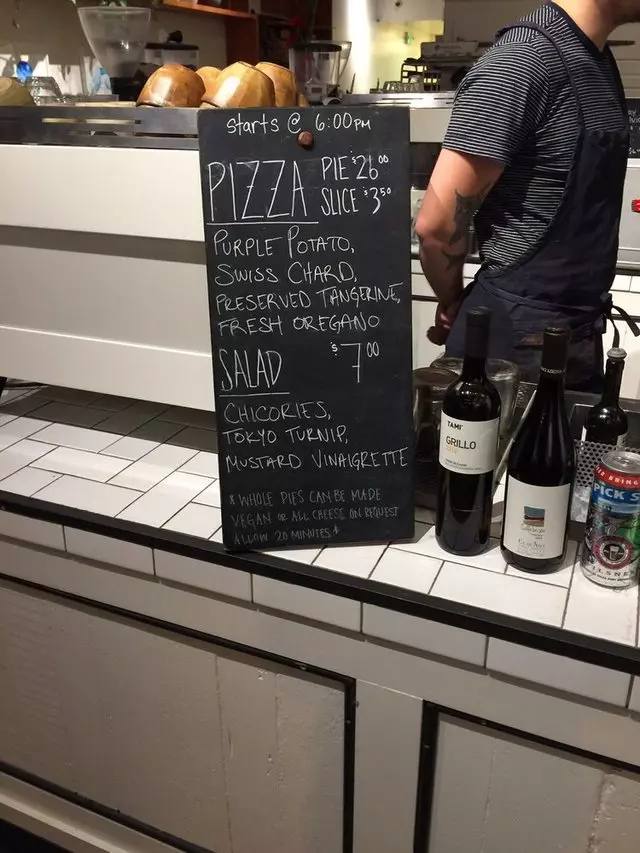 starts @ 6:00PM
PIZZA
PIE $26.00
SLICE $3.50
PURPLE POTATO,
SWISS CHARD,
PRESERVED TANGERINE,
FRESH OREGANO
SALAD $7.00
CHICORIES,
TOKYO TURNIP,
MUSTARD VINAIGRETTE
* WHOLE PIES CAN BE MADE
VEGAN OR ALL CHEESE ON REQUEST
ALLOW 20 MINUTES *
TAMI
GRILLO
PICK